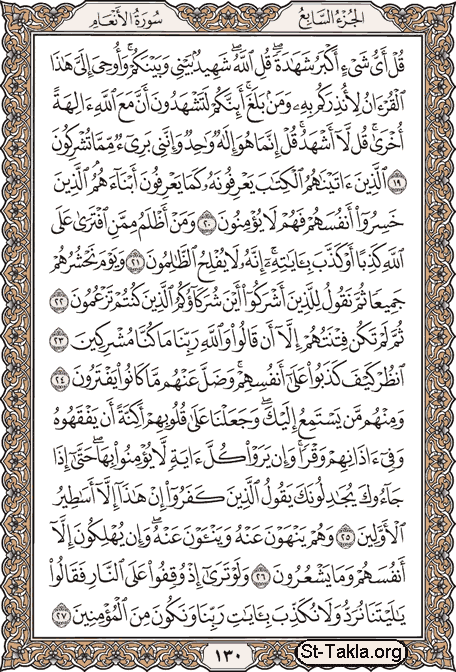 الجزء السابع
سورة الأنعام
قُلْ أَيُّ شَيْءٍ أَكْبَرُ شَهَٰدَةًۖ قُلِ ٱللَّهُۖ شَهِيدُۢ بَيْنِي وَبَيْنَكُمْۚ وَأُوحِيَ إِلَيَّ هَٰذَا
ٱلْقُرْءَانُ لِأُنذِرَكُم بِهِۦ وَمَنۢ بَلَغَۚ أَئِنَّكُمْ لَتَشْهَدُونَ أَنَّ مَعَ ٱللَّهِ ءَالِهَةً
أُخْرَىٰۚ قُل لَّآ أَشْهَدُۚ قُلْ إِنَّمَا هُوَ إِلَٰهٌ وَٰحِدٌ وَإِنَّنِي بَرِيٓءٌ مِّمَّا تُشْرِكُونَ
١٩ ٱلَّذِينَ ءَاتَيْنَٰهُمُ ٱلْكِتَٰبَ يَعْرِفُونَهُۥ كَمَا يَعْرِفُونَ أَبْنَآءَهُمُۘ ٱلَّذِينَ
خَسِرُوٓا۟ أَنفُسَهُمْ فَهُمْ لَا يُؤْمِنُونَ ٢٠ وَمَنْ أَظْلَمُ مِمَّنِ ٱفْتَرَىٰ عَلَى
ٱللَّهِ كَذِبًا أَوْ كَذَّبَ بِـَٔايَٰتِهِۦٓۗ إِنَّهُۥ لَا يُفْلِحُ ٱلظَّٰلِمُونَ ٢١ وَيَوْمَ نَحْشُرُهُمْ
جَمِيعًا ثُمَّ نَقُولُ لِلَّذِينَ أَشْرَكُوٓا۟ أَيْنَ شُرَكَآؤُكُمُ ٱلَّذِينَ كُنتُمْ تَزْعُمُونَ ٢٢
ثُمَّ لَمْ تَكُن فِتْنَتُهُمْ إِلَّآ أَن قَالُوا۟ وَٱللَّهِ رَبِّنَا مَا كُنَّا مُشْرِكِينَ ٢٣
ٱنظُرْ كَيْفَ كَذَبُوا۟ عَلَىٰٓ أَنفُسِهِمْۚ وَضَلَّ عَنْهُم مَّا كَانُوا۟ يَفْتَرُونَ ٢٤
وَمِنْهُم مَّن يَسْتَمِعُ إِلَيْكَۖ وَجَعَلْنَا عَلَىٰ قُلُوبِهِمْ أَكِنَّةً أَن يَفْقَهُوهُ
وَفِيٓ ءَاذَانِهِمْ وَقْرًاۚ وَإِن يَرَوْا۟ كُلَّ ءَايَةٍ لَّا يُؤْمِنُوا۟ بِهَاۖ حَتَّىٰٓ إِذَا
جَآءُوكَ يُجَٰدِلُونَكَ يَقُولُ ٱلَّذِينَ كَفَرُوٓا۟ إِنْ هَٰذَآ إِلَّآ أَسَٰطِيرُ
ٱلْأَوَّلِينَ ٢٥ وَهُمْ يَنْهَوْنَ عَنْهُ وَيَنْـَٔوْنَ عَنْهُۖ وَإِن يُهْلِكُونَ إِلَّآ
أَنفُسَهُمْ وَمَا يَشْعُرُونَ ٢٦ وَلَوْ تَرَىٰٓ إِذْ وُقِفُوا۟ عَلَى ٱلنَّارِ فَقَالُوا۟
يَٰلَيْتَنَا نُرَدُّ وَلَا نُكَذِّبَ بِـَٔايَٰتِ رَبِّنَا وَنَكُونَ مِنَ ٱلْمُؤْمِنِينَ ٢٧
١٣٠
St-Takla.org